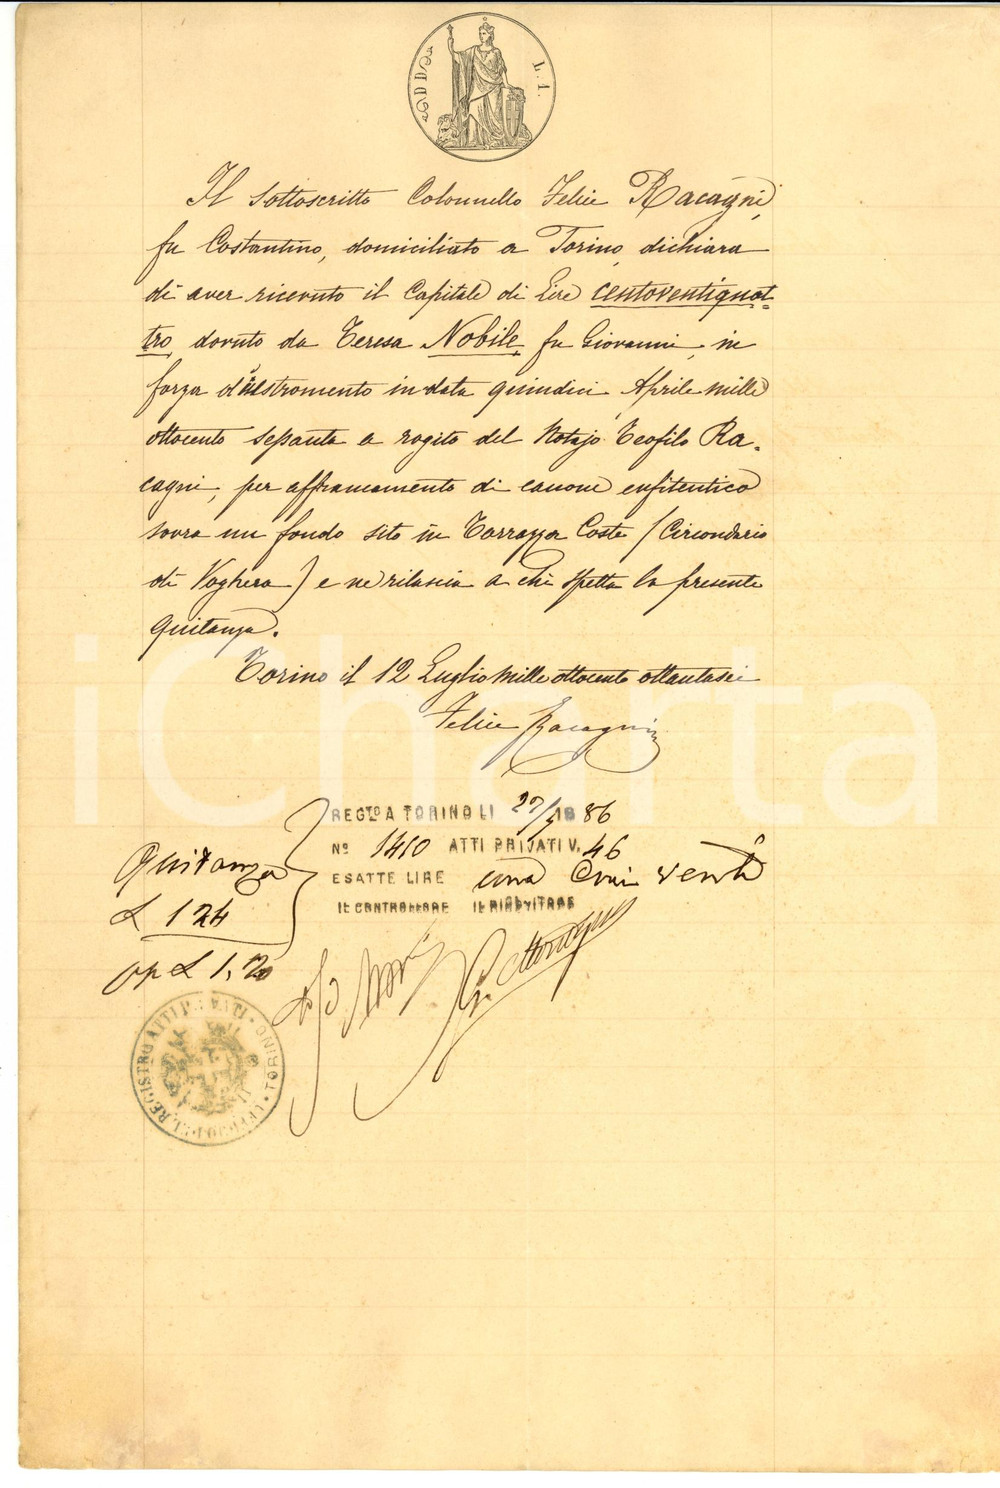 L. 1.
Il sottoscritto Colonnello Felice Racagni,
fu Costantino, domiciliato a Torino, dichiara
di aver ricevuto il Capitale di Lire centoventiquat-
tro, dovuto da Teresa Nobile, fu Giovanni, in
forza d'instromento in data quindici Aprile mille
ottocento settanta a rogito del Notajo Teofilo Ra-
cagni, per affrancamento di canone enfiteutico
sovra un fondo sito in Torrazza Coste (Circondario
di Voghera) e ne rilascia a chi spetta la presente
Quitanza.
Torino il 12 Luglio mille ottocento ottantasei
Felice Racagni
REG.TO A TORINO LI 27/7 1886
No 1410 ATTI PRIVATI V. 46
ESATTE LIRE una Cmi venti
IL CONTROLLORE IL RICEVITORE
Quitanza
£ 124
£ 1,20
UFFICIO REGISTRO ATTI PRIVATI · TORINO
iCharta